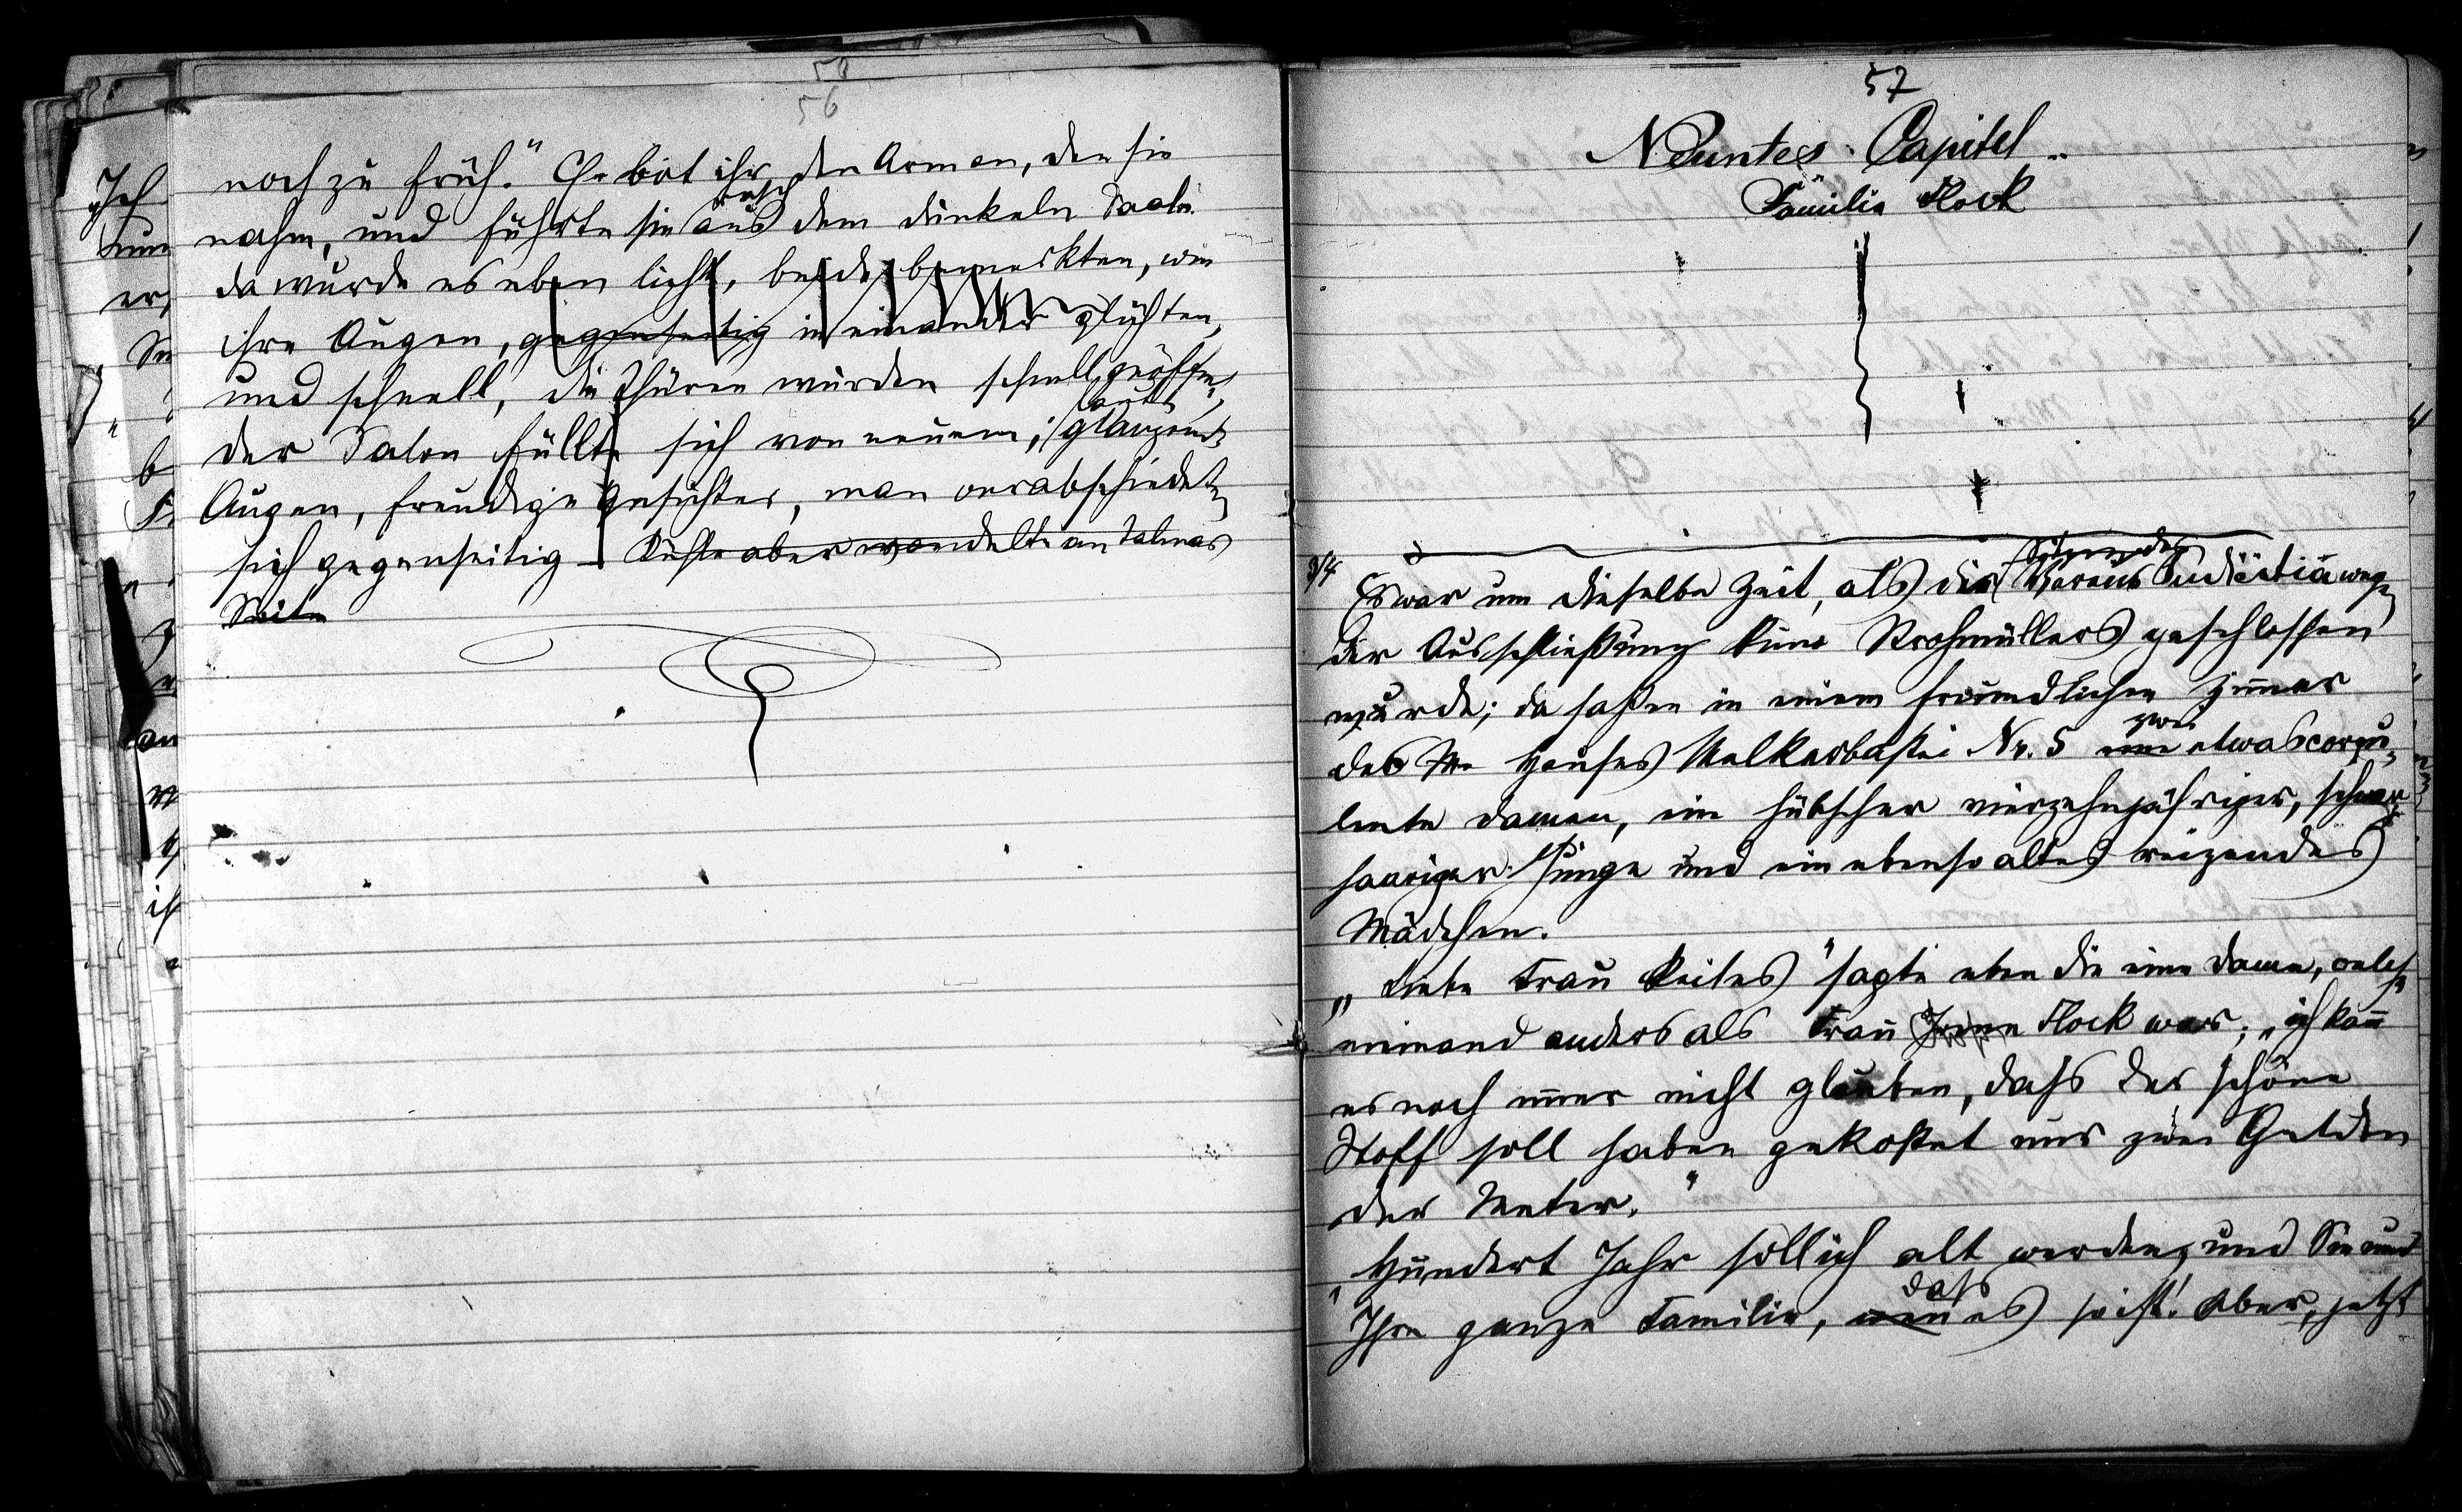 58
56
noch zu früh." Er bot ihr den Arm an, den sie
rasch
nahm, und führte sie aus dem dunkeln Saale.
da wurde es eben licht, beide bemerkten, wie
ihre Augen, gegenseitig in einander glühten,
und schnell, die Thüren wurden schnell geöffnet,
der Salon füllte sich von neuem; glänzende
Augen, freudige Gesichter, man verabschiedete
sich gegenseitig – aber wandelte an Talmas
Seite
57
Neuntes Capitel
Familie Flock
9/4
Es war um dieselbe Zeit, als die Sitzung der Judäitia wegen
der Ausschließung Kuno Strohmüllers geschlossen
wurde; da saßen in einem freundlichen Zimmer
zwei
des Hauses Mölkerbastei Nr. 5 eine etwas corpu-
lente Damen, ein hübscher vierzehnjähriger, schwarz-
haariger Junge und ein ebenso altes reizendes
Mädchen.
„Liebe Frau Keiles" sagte eben die eine Dame, welche
niemand anders als Frau Flock war; „ich kann
es noch immer nicht glauben, dass der schöne
Stoff soll haben gekostet nur zwei Gulden
der Meter."
„Hundert Jahr soll ich alt werden, und Sie und
dass
Ihre ganze Familie, wenn es so ist! Aber, jetzt